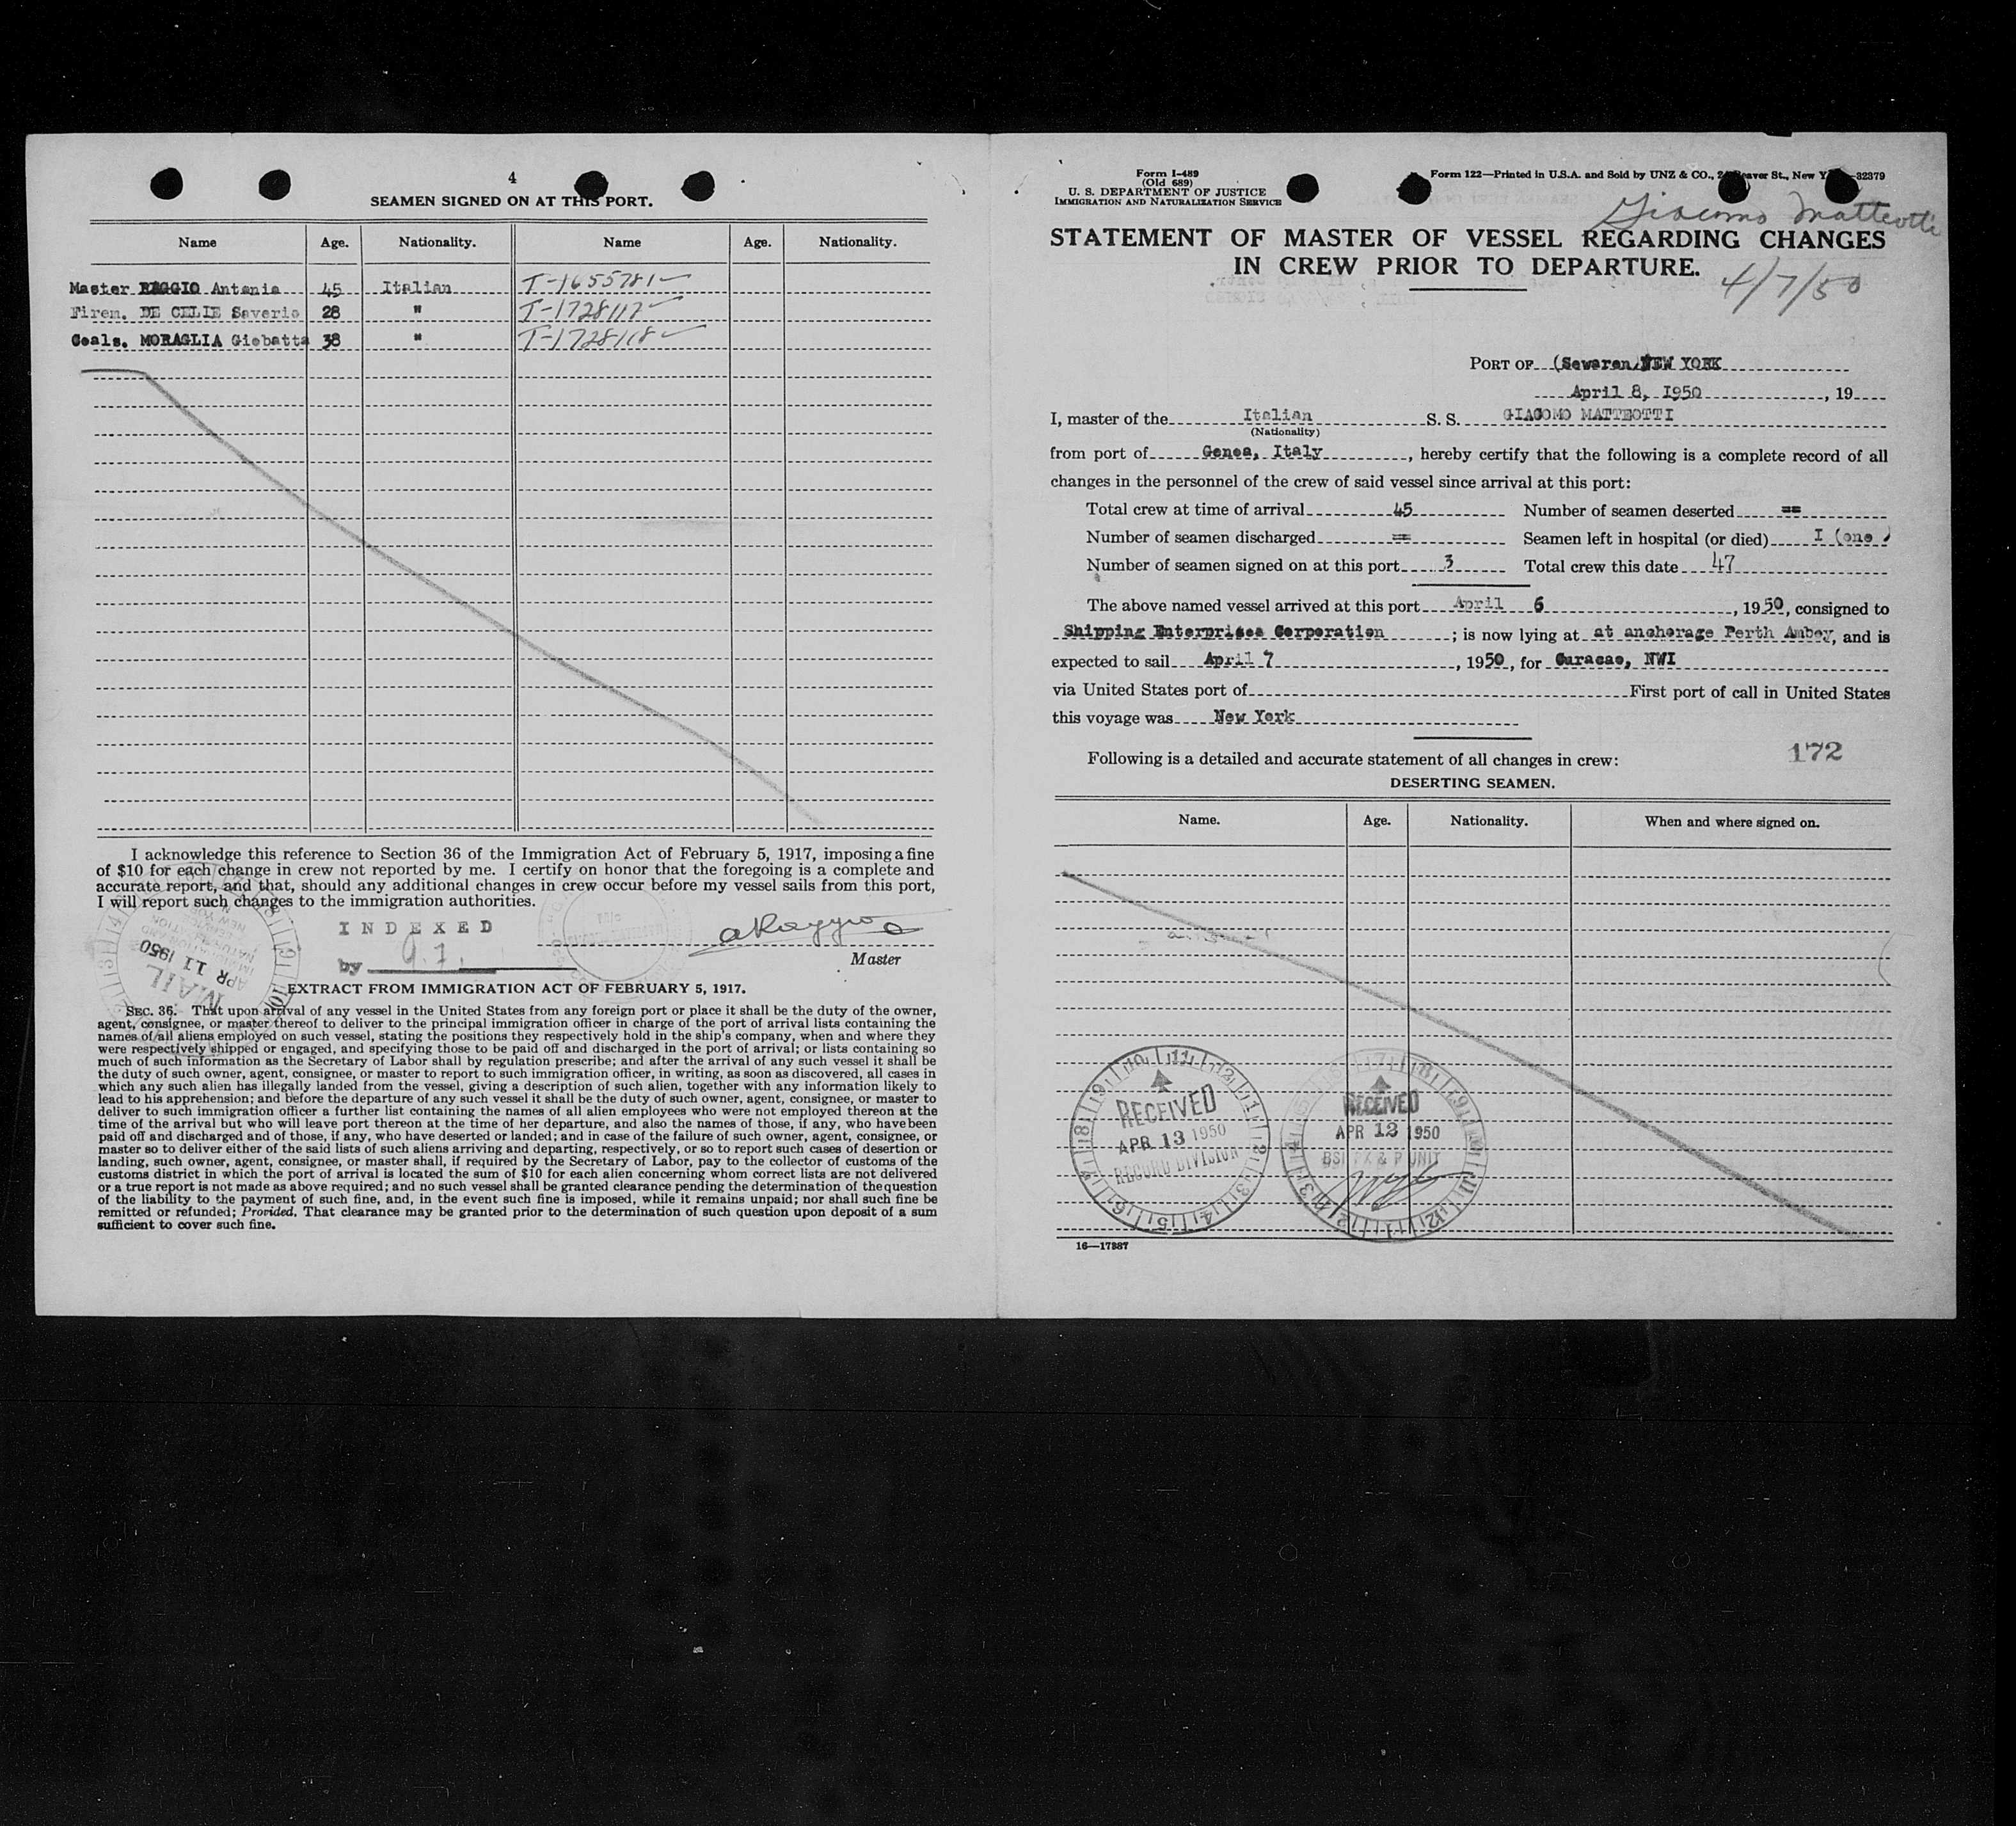 4
SEAMEN SIGNED ON AT THIS PORT.
Name Age. Nationality. Name Age. Nationality.
Master RAGGIO Antonio 45 Italian T-1655781
Firem. DE CELIE Saverio 28 " T-1728117
Coals. MORAGLIA Giobatta 38 " T-1728118
I acknowledge this reference to Section 36 of the Immigration Act of February 5, 1917, imposing a fine
of $10 for each change in crew not reported by me. I certify on honor that the foregoing is a complete and
accurate report, and that, should any additional changes in crew occur before my vessel sails from this port,
I will report such changes to the immigration authorities.
INDEXED
aRaggio
by
Master
MAIL
APR 11 1950
EXTRACT FROM IMMIGRATION ACT OF FEBRUARY 5, 1917.
SEC. 36. That upon arrival of any vessel in the United States from any foreign port or place it shall be the duty of the owner,
agent, consignee, or master thereof to deliver to the principal immigration officer in charge of the port of arrival lists containing the
names of all aliens employed on such vessel, stating the positions they respectively hold in the ship's company, when and where they
were respectively shipped or engaged, and specifying those to be paid off and discharged in the port of arrival; or lists containing so
much of such information as the Secretary of Labor shall by regulation prescribe; and after the arrival of any such vessel it shall be
the duty of such owner, agent, consignee, or master to report to such immigration officer, in writing, as soon as discovered, all cases in
which any such alien has illegally landed from the vessel, giving a description of such alien, together with any information likely to
lead to his apprehension; and before the departure of any such vessel it shall be the duty of such owner, agent, consignee, or master to
deliver to such immigration officer a further list containing the names of all alien employees who were not employed thereon at the
time of the arrival but who will leave port thereon at the time of her departure, and also the names of those, if any, who have been
paid off and discharged and of those, if any, who have deserted or landed; and in case of the failure of such owner, agent, consignee, or
master so to deliver either of the said lists of such aliens arriving and departing, respectively, or so to report such cases of desertion or
landing, such owner, agent, consignee, or master shall, if required by the Secretary of Labor, pay to the collector of customs of the
customs district in which the port of arrival is located the sum of $10 for each alien concerning whom correct lists are not delivered
or a true report is not made as above required; and no such vessel shall be granted clearance pending the determination of the question
of the liability to the payment of such fine, and, in the event such fine is imposed, while it remains unpaid; nor shall such fine be
remitted or refunded; Provided, That clearance may be granted prior to the determination of such question upon deposit of a sum
sufficient to cover such fine.
Form I-489
(Old 689)
U. S. DEPARTMENT OF JUSTICE
IMMIGRATION AND NATURALIZATION SERVICE
Form 122—Printed in U.S.A. and Sold by UNZ & CO., St., New 32379
Giacomo Matteotti
STATEMENT OF MASTER OF VESSEL REGARDING CHANGES
IN CREW PRIOR TO DEPARTURE.
4/7/50
PORT OF (Sewaren) NEW YORK
April 8, 1950, 19
I, master of the Italian S. S. GIACOMO MATTEOTTI
(Nationality)
from port of Genoa, Italy, hereby certify that the following is a complete record of all
changes in the personnel of the crew of said vessel since arrival at this port:
Total crew at time of arrival 45 Number of seamen deserted ==
Number of seamen discharged == Seamen left in hospital (or died) I (one )
Number of seamen signed on at this port 3 Total crew this date 47
The above named vessel arrived at this port April 6, 1950, consigned to
Shipping Enterprises Corporation; is now lying at at anchorage Perth Amboy, and is
expected to sail April 7, 1950, for Curacao, NWI
via United States port of First port of call in United States
this voyage was New York
Following is a detailed and accurate statement of all changes in crew:
172
DESERTING SEAMEN.
Name. Age. Nationality. When and where signed on.
RECEIVED
APR 13 1950
RECORD DIVISION
RECEIVED
APR 12 1950
BSI EX & P UNIT
16—17987